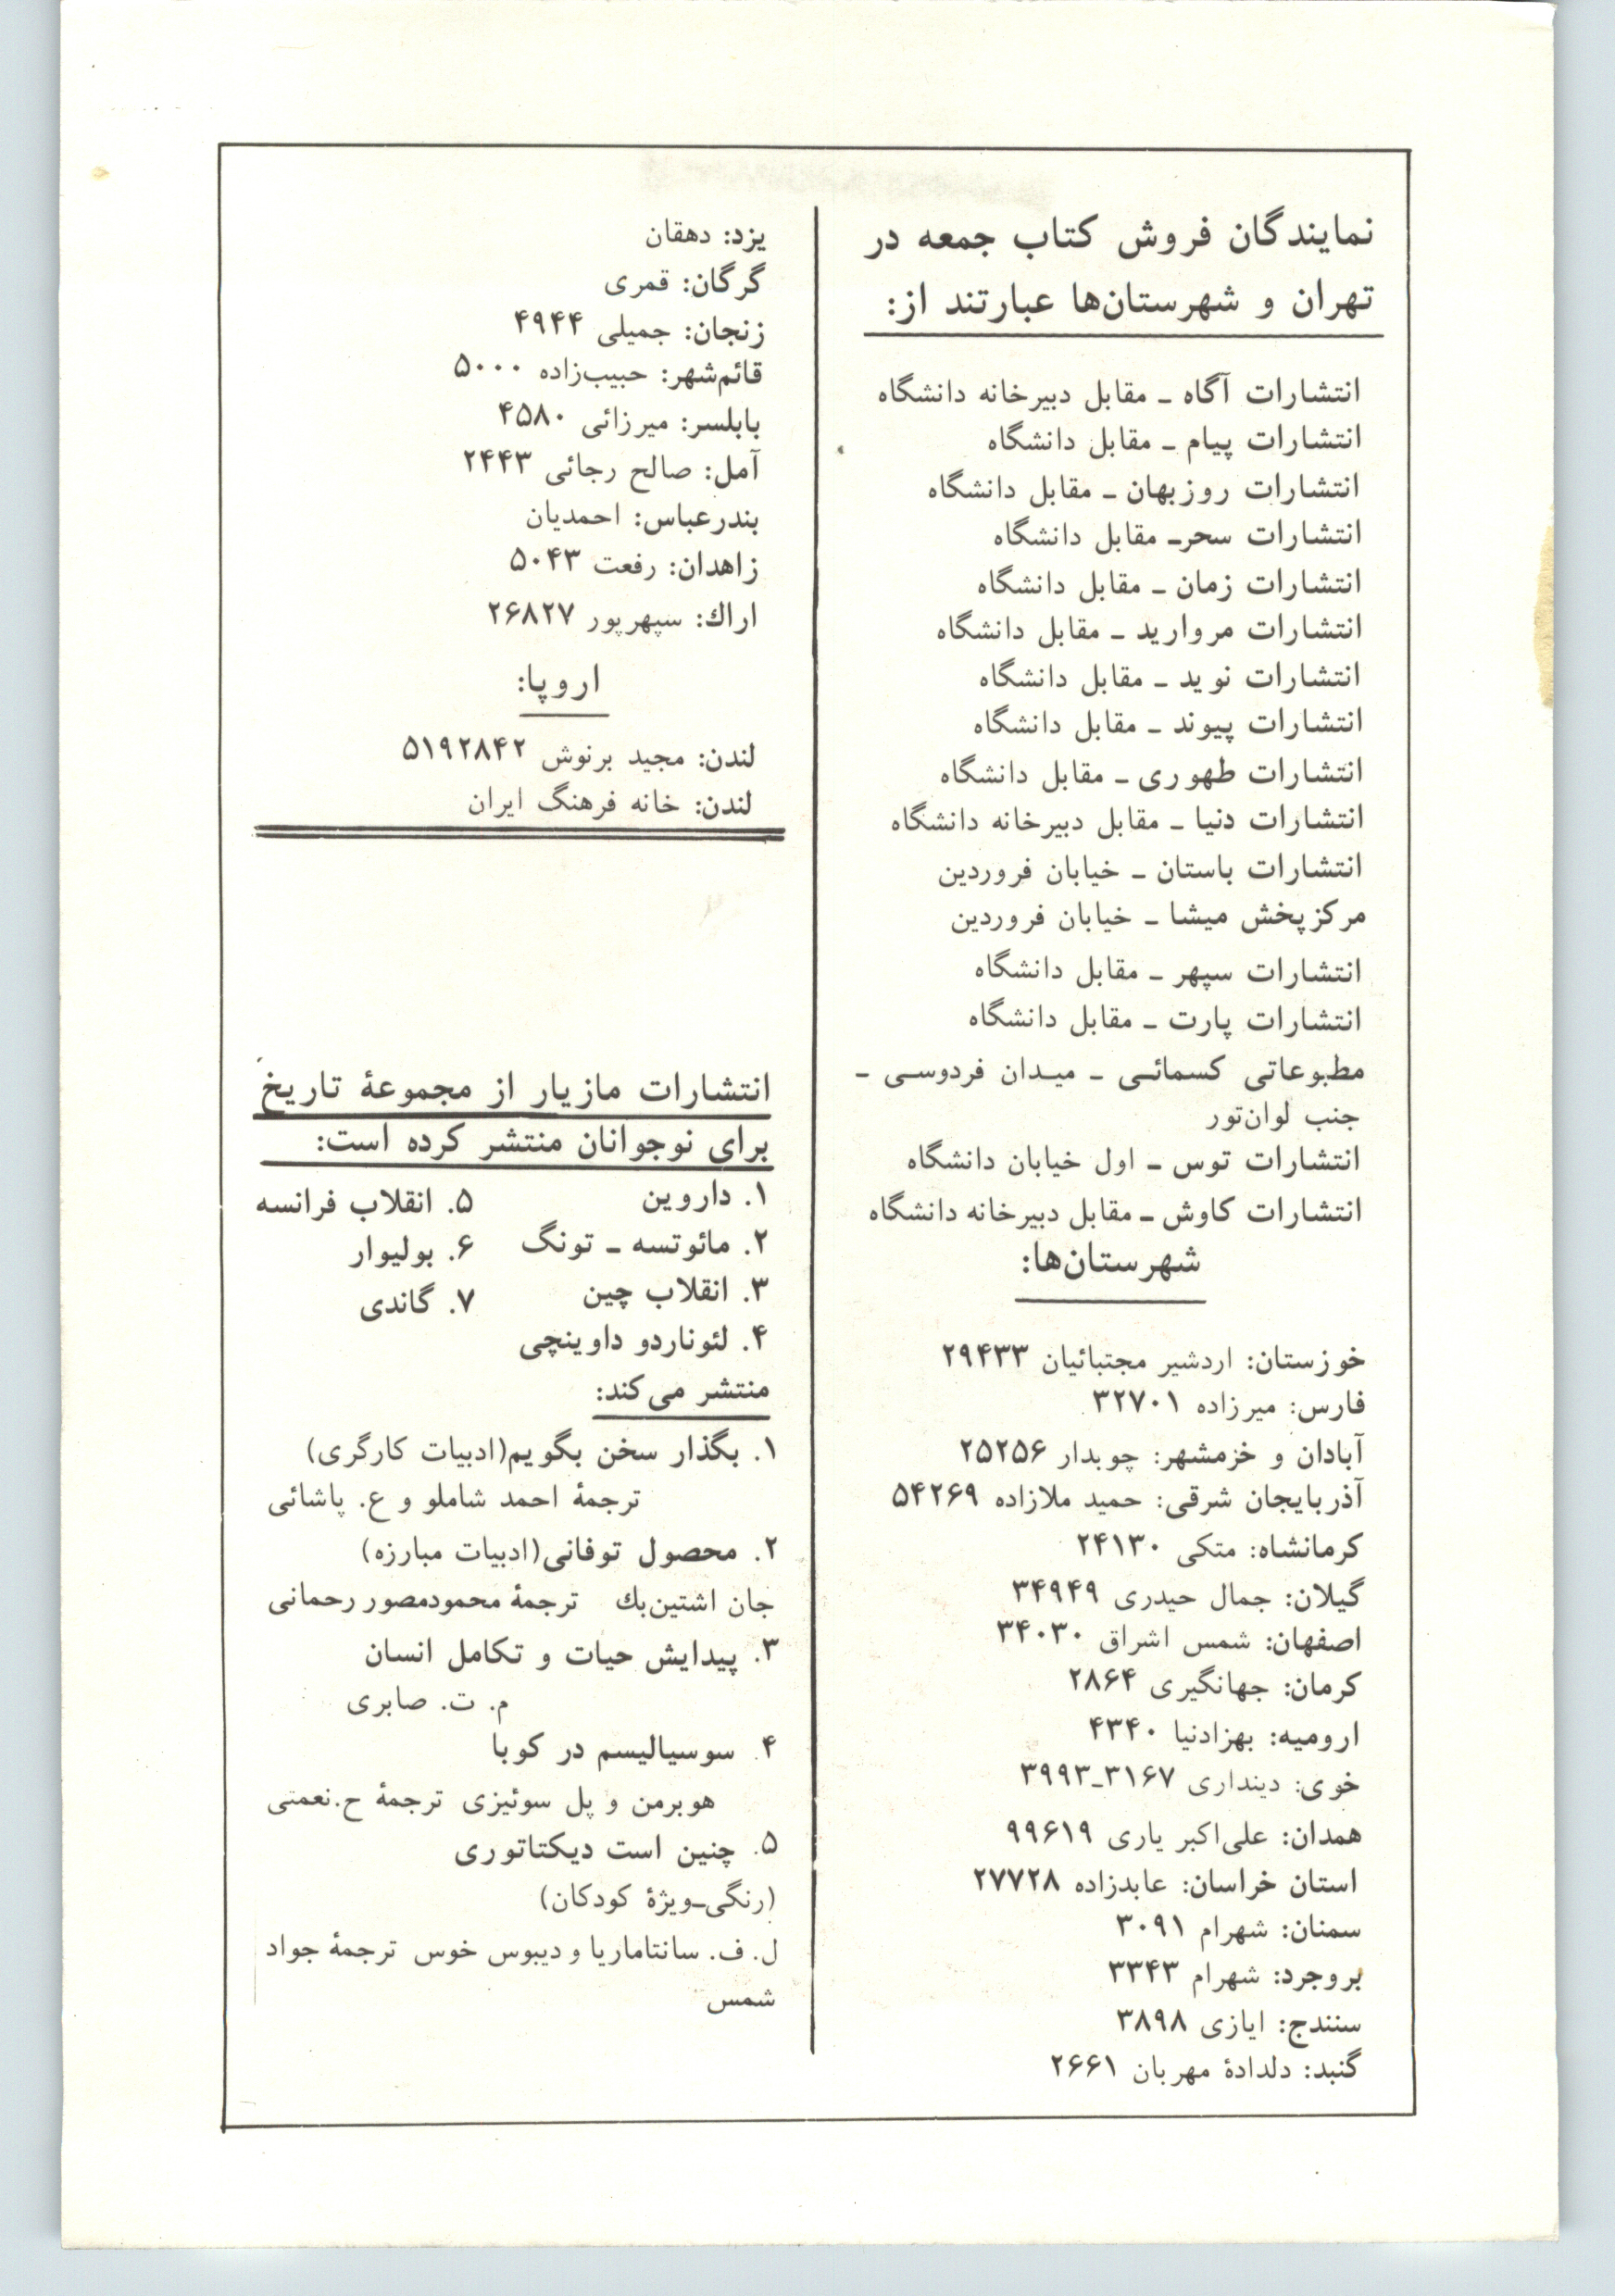 نمایندگان فروش کتاب جمعه در
تهران و شهرستان‌ها عبارتند از:
انتشارات آگاه ـ مقابل دبیرخانه دانشگاه
انتشارات پیام ـ مقابل دانشگاه
انتشارات روزبهان ـ مقابل دانشگاه
انتشارات سحرـ مقابل دانشگاه
انتشارات زمان ـ مقابل دانشگاه
انتشارات مروارید ـ مقابل دانشگاه
انتشارات نوید ـ مقابل دانشگاه
انتشارات پیوند ـ مقابل دانشگاه
انتشارات طهوری ـ مقابل دانشگاه
انتشارات دنیا ـ مقابل دبیرخانه دانشگاه
انتشارات باستان ـ خیابان فروردین
مرکزپخش میشا ـ خیابان فروردین
انتشارات سپهر ـ مقابل دانشگاه
انتشارات پارت ـ مقابل دانشگاه
مطبوعاتی کسمائی ـ میدان فردوسی ـ
جنب لوان‌تور
انتشارات توس ـ اول خیابان دانشگاه
انتشارات کاوش ـ مقابل دبیرخانه دانشگاه
شهرستان‌ها:
خوزستان: اردشیر مجتبائیان ۲۹۴۳۳
فارس: میرزاده ۳۲۷۰۱
آبادان و خزمشهر: چوبدار ۲۵۲۵۶
آذربایجان شرقی: حمید ملازاده ۵۴۲۶۹
کرمانشاه: متکی ۲۴۱۳۰
گیلان: جمال حیدری ۳۴۹۴۹
اصفهان: شمس اشراق ۳۴۰۳۰
کرمان: جهانگیری ۲۸۶۴
ارومیه: بهزادنیا ۴۳۴۰
خوی: دینداری ۳۱۶۷ـ۳۹۹۳
همدان: علی‌اکبر یاری ۹۹۶۱۹
استان خراسان: عابدزاده ۲۷۷۲۸
سمنان: شهرام ۳۰۹۱
بروجرد: شهرام ۳۳۴۳
سنندج: ایازی ۳۸۹۸
گنبد: دلدادهٔ مهربان ۲۶۶۱
یزد: دهقان
گرگان: قمری
زنجان: جمیلی ۴۹۴۴
قائم‌شهر: حبیب‌زاده ۵۰۰۰
بابلسر: میرزائی ۴۵۸۰
آمل: صالح رجائی ۲۴۴۳
بندرعباس: احمدیان
زاهدان: رفعت ۵۰۴۳
اراك: سپهرپور ۲۶۸۲۷
اروپا:
لندن: مجید برنوش ۵۱۹۲۸۴۲
لندن: خانه فرهنگ ایران
انتشارات مازیار از مجموعهٔ تاریخ
برای نوجوانان منتشر کرده است:
۱. داروین
۲. مائوتسه ـ تونگ
۳. انقلاب چین
۴. لئوناردو داوینچی
۵. انقلاب فرانسه
۶. بولیوار
۷. گاندی
منتشر می‌کند:
۱. بگذار سخن بگویم(ادبیات کارگری)
ترجمهٔ احمد شاملو و ع. پاشائی
۲. محصول توفانی(ادبیات مبارزه)
جان اشتین‌بك ترجمهٔ محمودمصور رحمانی
۳. پیدایش حیات و تکامل انسان
م. ت. صابری
۴. سوسیالیسم در کوبا
هوبرمن و پل سوئیزی ترجمهٔ ح.نعمتی
۵. چنین است دیکتاتوری
(رنگی‌ـویژهٔ کودکان)
ل. ف. سانتاماریا و دیبوس خوس ترجمهٔ جواد
شمس